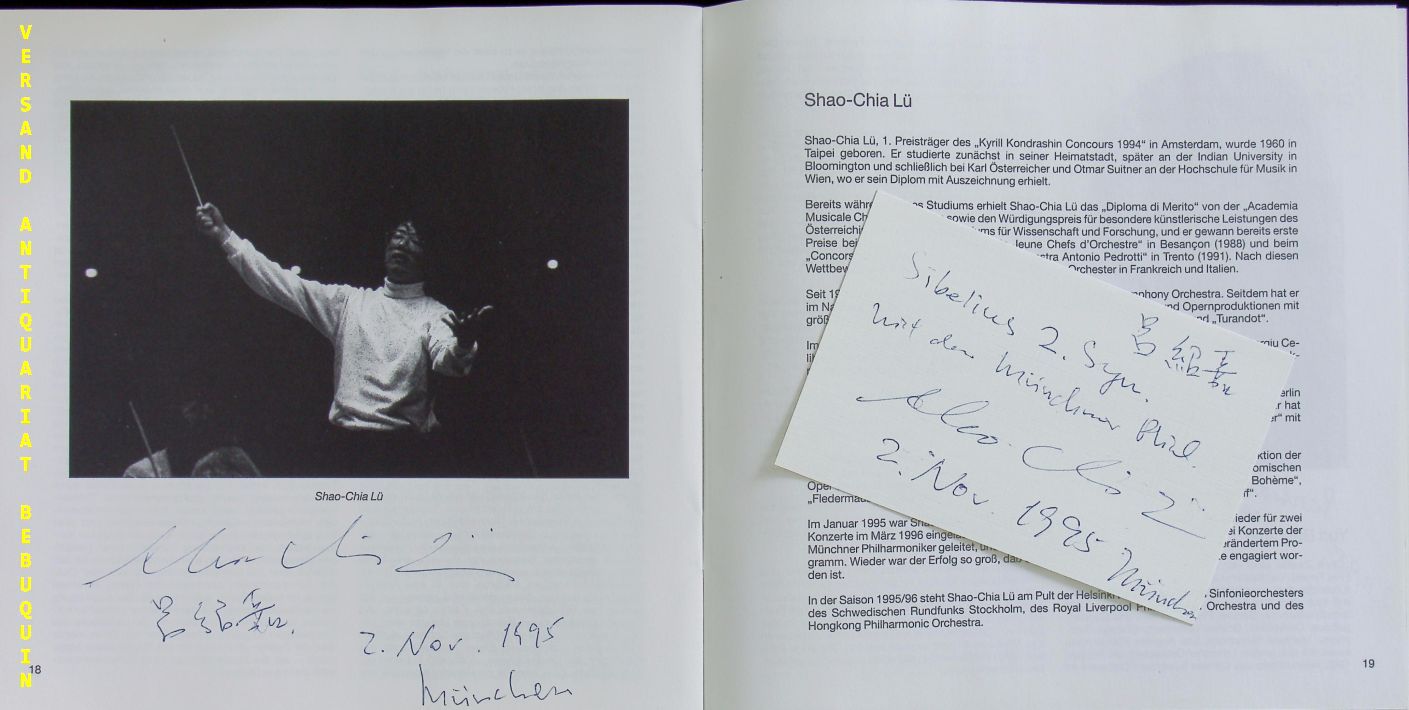 VERSAND ANTIQUARIAT BEBUQUIN
Shao-Chia Lü
Shao-Chia Lü
呂紹嘉
2. Nov. 1995
München
18
Shao-Chia Lü
Shao-Chia Lü, 1. Preisträger des „Kyrill Kondrashin Concours 1994“ in Amsterdam, wurde 1960 in
Taipei geboren. Er studierte zunächst in seiner Heimatstadt, später an der Indian University in
Bloomington und schließlich bei Karl Österreicher und Otmar Suitner an der Hochschule für Musik in
Wien, wo er sein Diplom mit Auszeichnung erhielt.
Bereits Studiums erhielt Shao-Chia Lü das „Diploma di Merito“ von der „Academia
Musicale sowie den Würdigungspreis für besondere künstlerische Leistungen des
für Wissenschaft und Forschung, und er gewann bereits erste
Preise Jeune Chefs d'Orchestre“ in Besançon (1988) und beim
Antonio Pedrotti“ in Trento (1991). Nach diesen
Orchester in Frankreich und Italien.
Seit Orchestra. Seitdem hat er
im Opernproduktionen mit
„Turandot“.
hat
mit
der
Bohème“,
Im Januar 1995 war für zwei
Konzerte im März 1996 Konzerte der
Münchner Philharmoniker geleitet, Pro-
gramm. Wieder war der Erfolg so groß, engagiert wor-
den ist.
In der Saison 1995/96 steht Shao-Chia Lü am Pult der Sinfonieorchesters
des Schwedischen Rundfunks Stockholm, des Royal Liverpool Orchestra und des
Hongkong Philharmonic Orchestra.
19
Sibelius 2. Syn.
mit den Münchner Phil.
呂紹嘉
Shao-Chia Lü
2. Nov. 1995 München